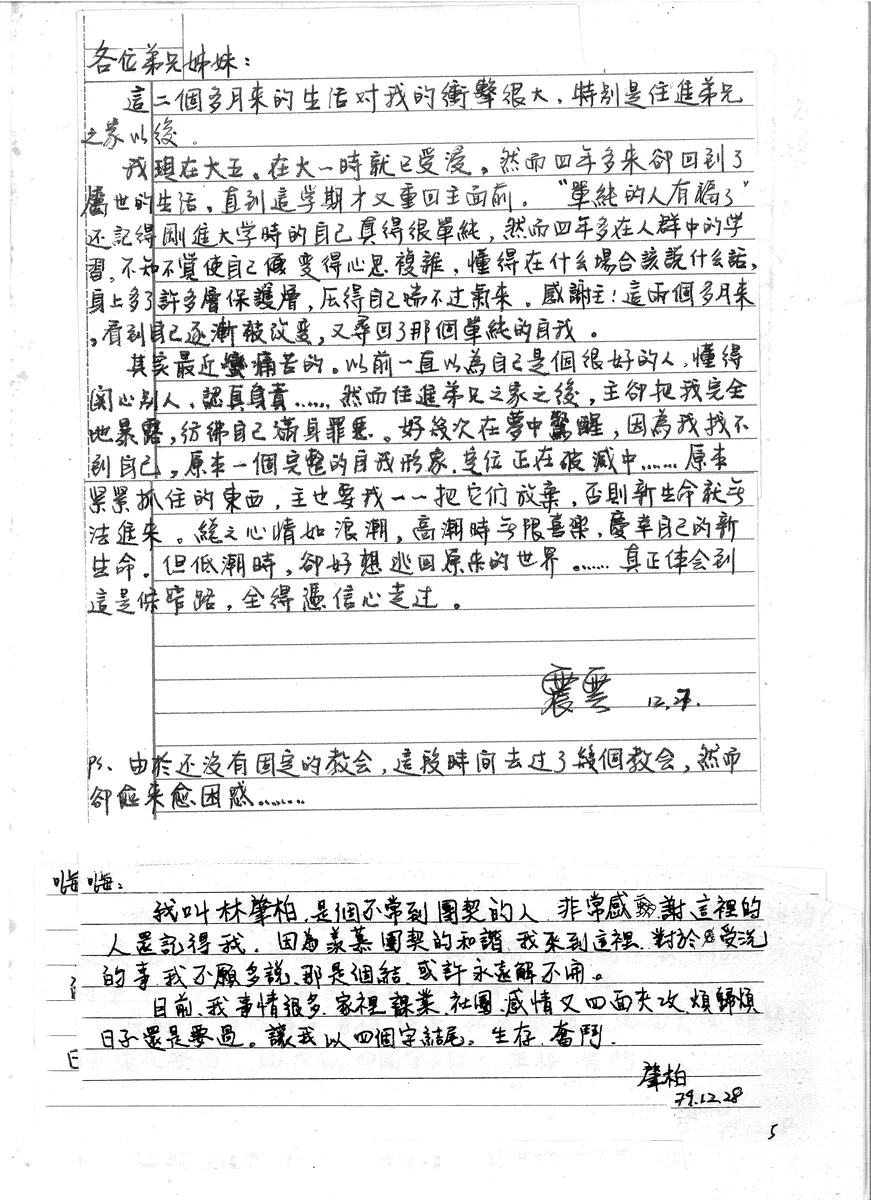 各位弟兄姊妹：
這二個多月来的生活对我的衝擊很大，特别是住進弟兄
之家以後。
我現在大五。在大一時就已受浸，然而四年多來卻回到了
屬世的生活，直到這学期才又重回主面前。“單純的人有福了”
还記得剛進大学時的自己真得很單純，然而四年多在人群中的学
習，不知不覚使自己变得心思複雜，懂得在什么場合該説什么話，
身上多了許多層保護層，压得自己喘不过氣来。感謝主！這両個多月来
，看到自己逐漸被改变，又尋回了那個單純的自我。
其实最近蠻痛苦的。以前一直以為自己是個很好的人，懂得
関心别人、認真負責……然而住進弟兄之家之後，主卻把我完全
地暴露，彷彿自己滿身罪惡。好幾次在夢中驚醒，因為我找不
到自己，原本一個完整的自我形象、定位正在破滅中……原本
緊緊抓住的東西，主也要我一一把它们放棄，否則新生命就无
法進来。総之心情如浪潮，高潮時无限喜樂，慶幸自己的新
生命。但低潮時，卻好想逃回原来的世界。……真正体会到
這是條窄路，全得憑信心走过。
震雲 12.27.
PS、由於还没有固定的教会，這段時间去过了幾個教会，然而
卻愈来愈困惑………
嗨嗨：
我叫林肇柏，是個不常到團契的人，非常感謝這裡的
人還記得我。因為羨慕團契的和諧，我來到這裡，對於受洗
的事，我不願多說，那是個結，或許永遠解不開。
目前，我事情很多，家裡、課業、社團、感情又四面夾攻，煩歸煩
日子還是要過。讓我以四個字結尾。生存，奮鬥。
日
肇柏
79.12.28
5